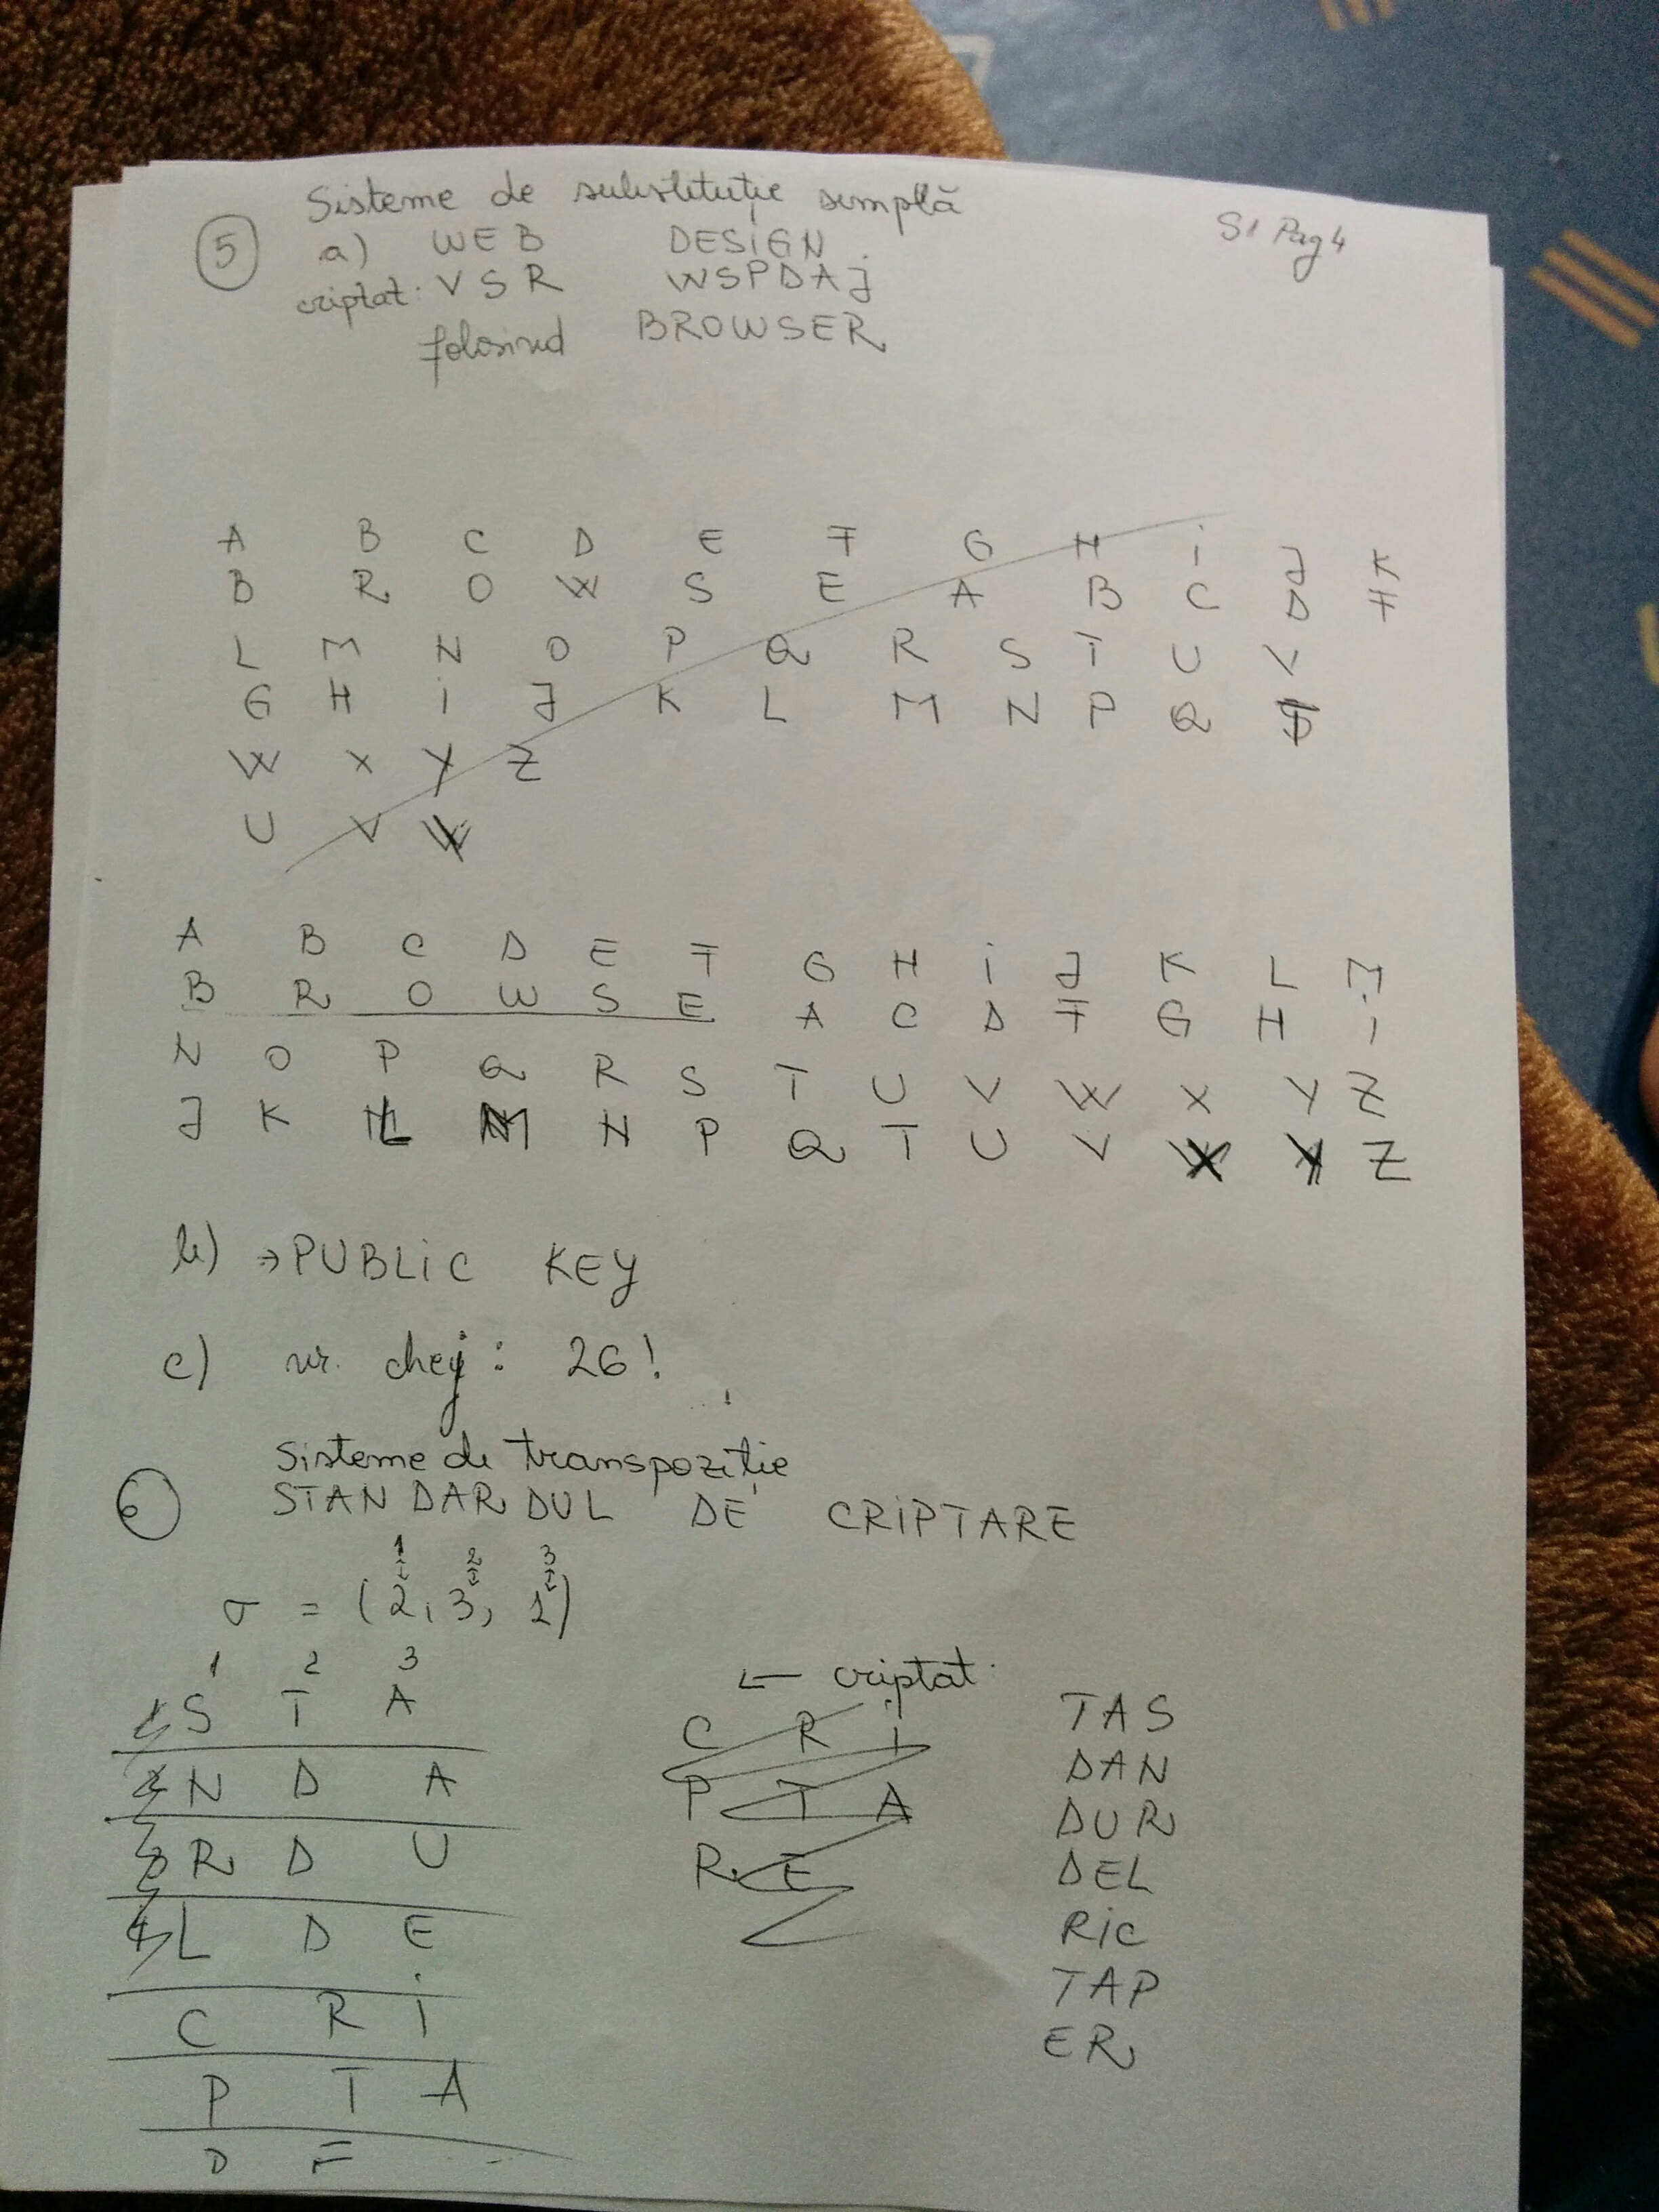 Sisteme de substituție simplă
S1 Pag 4
5 a) WEB DESIGN
criptat: VSR WSPDAJ
folosind BROWSER
A B C D E F G H i J K
B R O W S E A B C D F
L M N O P Q R S T U V
G H i J K L M N P Q T
W X Y Z
U V
A B C D E F G H i J K L M
B R O W S E A C D F G H i
N O P Q R S T U V W X Y Z
J K L M N P Q T U V X Y Z
b) → PUBLiC KEY
c) nr. chei : 26!
Sisteme de transpoziție
6 STANDARDUL DE CRiPTARE
1 2 3
σ = (2, 3, 1)
1 2 3
1 S T A
2 N D A
3 R D U
4 L D E
C R i
P T A
R E
← criptat
C R i
P T A
R E
TAS
DAN
DUR
DEL
RiC
TAP
ER